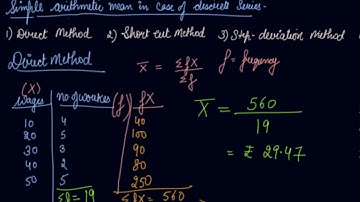 Simple arithmetic mean in case of discrete series-
1) Direct Method 2) Short cut Method 3) Step-deviation Method
Direct Method X̄ = ΣfX / Σf f = frequency
(X) Wages no of workers (f) fX
10 4 40
20 5 100
30 3 90
40 2 80
50 5 250
Σf = 19 ΣfX = 560
X̄ = 560 / 19
= ₹ 29.47